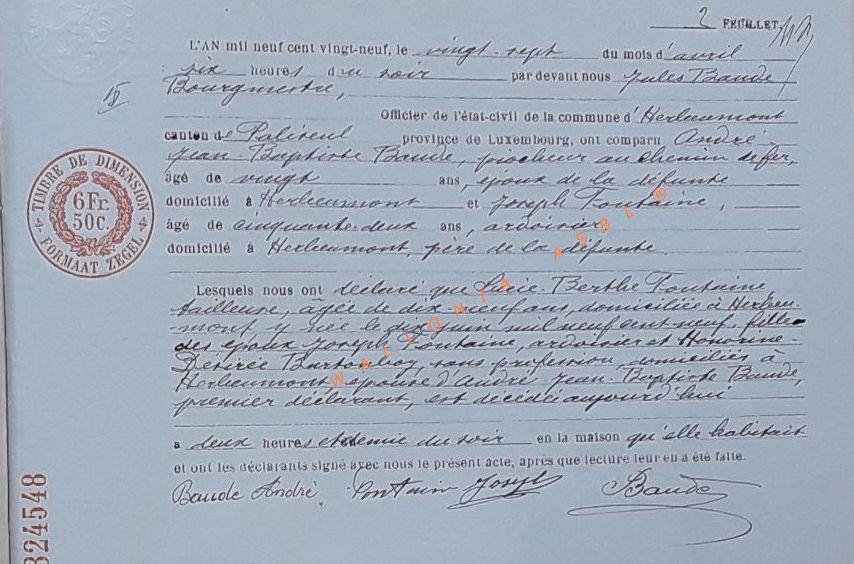 2 FEUILLET.
L'AN mil neuf cent vingt-neuf, le vingt-sept du mois d'avril
six heures du soir par devant nous Jules Baude
Bourgmestre,
Officier de l'état-civil de la commune d'Herbeumont
canton de Paliseul province de Luxembourg, ont comparu André-
Jean-Baptiste Baude, piocheur au chemin de fer,
âgé de vingt ans, époux de la défunte
domicilié à Herbeumont et Joseph Fontaine,
âgé de cinquante-deux ans, ardoisier
domicilié à Herbeumont, père de la défunte.
TIMBRE DE DIMENSION
6 Fr.
50c.
FORMAAT ZEGEL
Lesquels nous ont déclaré que Lucie-Berthe Fontaine,
tailleuse, âgée de dix-neuf ans, domiciliée à Herbeu-
mont y née le dix juin mil neuf cent neuf, fille
des époux Joseph Fontaine, ardoisier et Honorine-
Désirée sans profession, domiciliés à
Herbeumont, épouse d'André-Jean-Baptiste Baude,
premier déclarant, est décédée aujourd'hui
à deux heures et demie du soir en la maison qu'elle habitait
et ont les déclarants signé avec nous le présent acte, après que lecture leur en a été faite.
Baude André. Fontain Joseph Baude
324548
WALLONIA ASBL